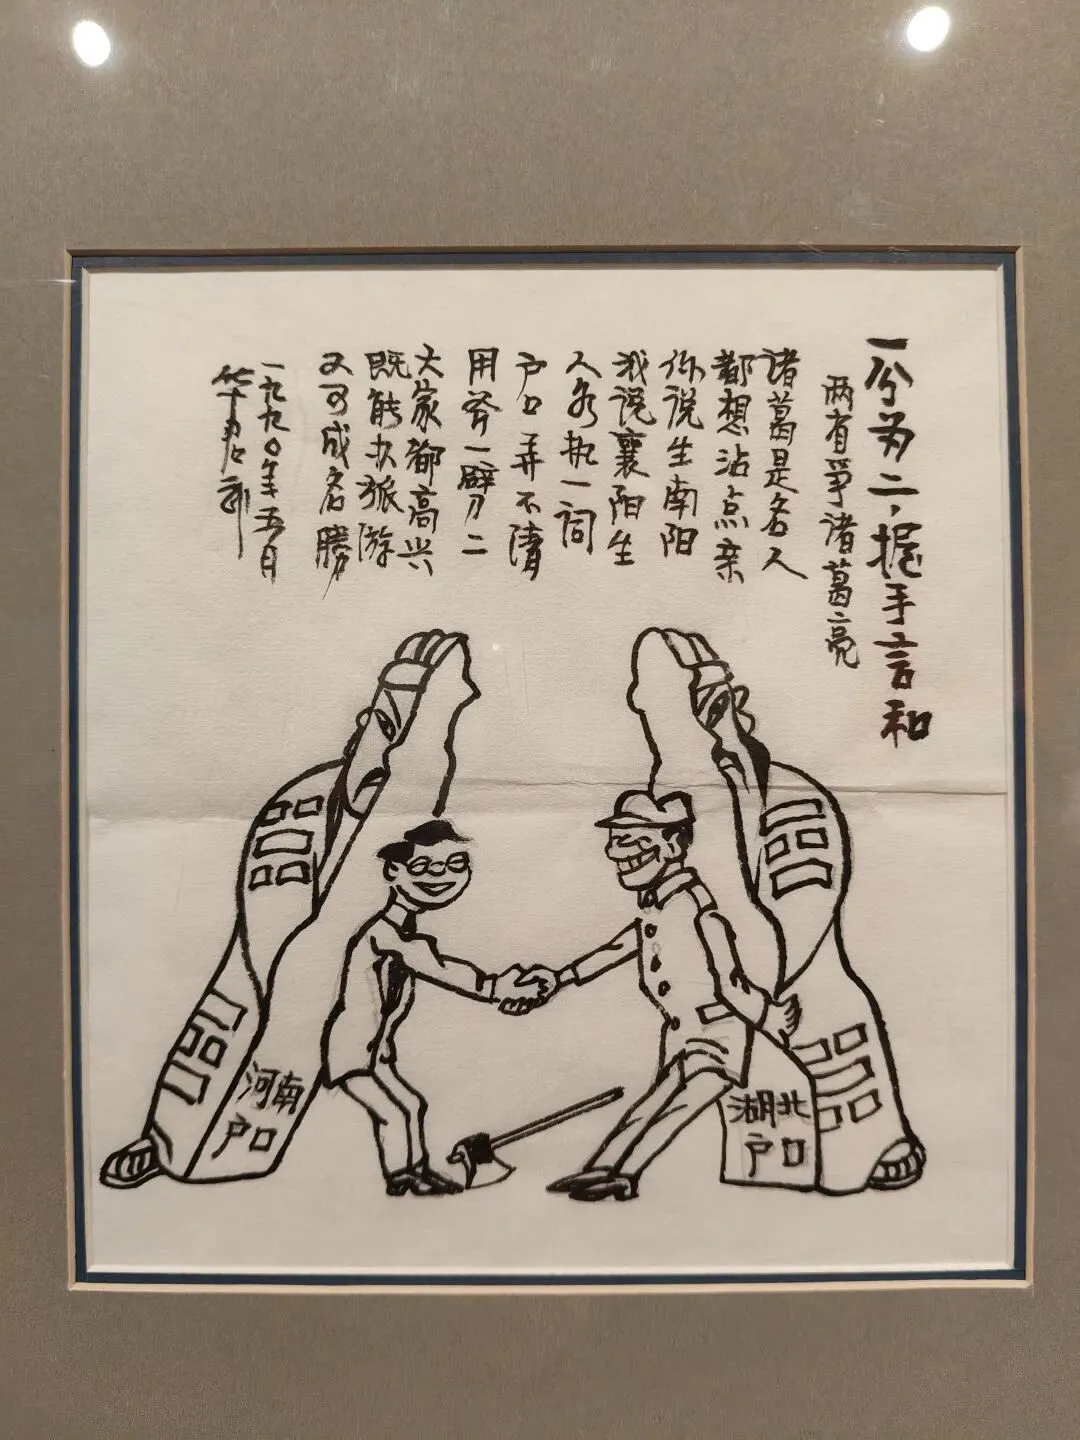 一分为二，握手言和
两省争诸葛亮
诸葛是名人
都想沾点亲
你说生南阳
我说襄阳生
人各执一词
户口弄不清
用斧一劈二
大家都高兴
既能扒旅游
又可成名勝
一九九〇年五月
华君武
河南
户口
湖北
户口